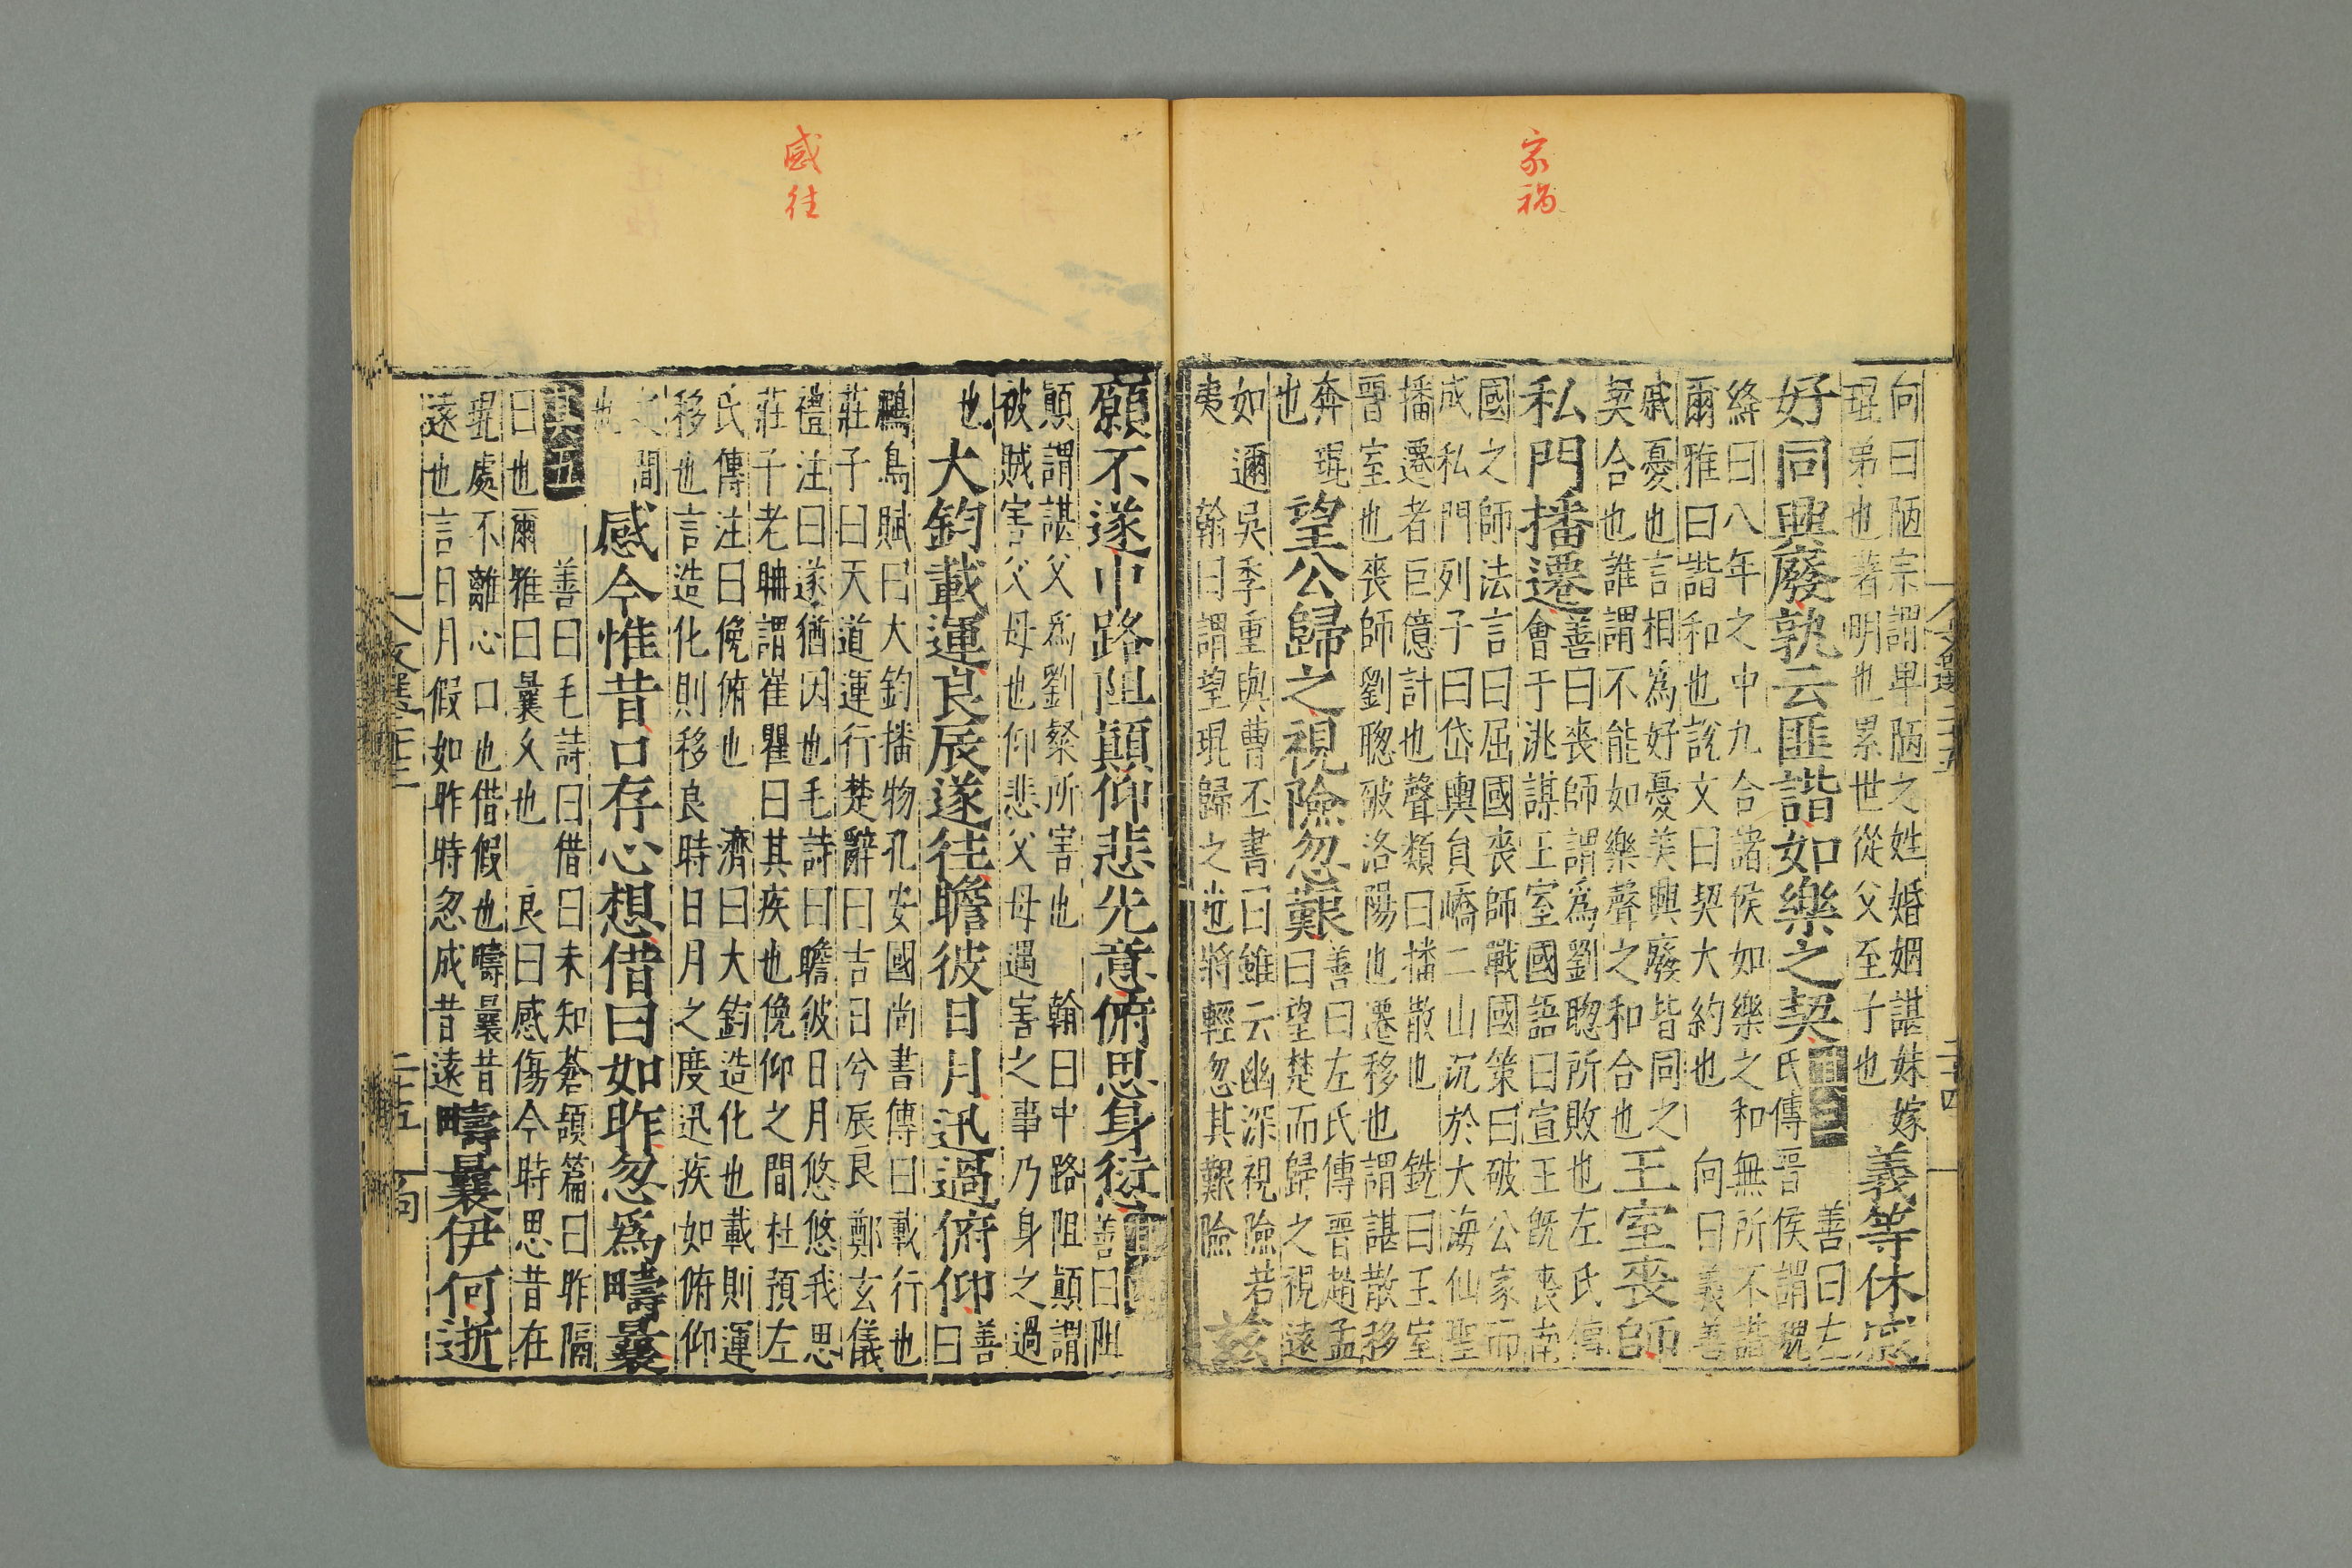 家禍
文選二十五
二十四
向曰陋宗謂卑陋之姓婚姻諶妹嫁
琨弟也著明也累世從父至子也
義等休戚
好同興廢孰云匪諧如樂之契
其三
善曰左
氏傳晉侯謂魏
絳曰八年之中九合諸侯如樂之和無所不諧
爾雅曰諧和也說文曰契大約也 向曰義善
戚憂也言相為好憂美興廢皆同之
契合也誰謂不能如樂聲之和合也
王室喪師
私門播遷
善曰喪師謂為劉聰所敗也左氏傳
會于洮謀王室國語曰宣王旣喪南
國之師法言曰屈國喪師戰國策曰破公家而
成私門列子曰岱輿員嶠二山沉於大海仙聖
播遷者巨億計也聲類曰播散也 銑曰王室
晉室也喪師劉聰破洛陽也遷移也謂諶散移
奔琨
也
望公歸之視險忽艱
善曰左氏傳晉趙孟
曰望楚而歸之視遠
如邇 吳季重與曹丕書曰雖云幽深視險若
夷 翰曰謂望琨歸之也將輕忽其艱險
茲
感往
願不遂中路阻顛仰悲先意俯思身愆
善曰阻
顛謂諶父爲劉粲所害也 翰曰中路阻顛謂
被賊害父母也仰悲父母遇害之事乃身之過
也
大鈞載運良辰遂往瞻彼日月迅過俯仰
善曰
鵩鳥賦曰大鈞播物孔安國尚書傳曰載行也
莊子曰天道運行楚辭曰吉日兮辰良鄭玄儀
禮注曰遂猶因也毛詩曰瞻彼日月悠悠我思
莊子老聃謂崔瞿曰其疾也俛仰之間杜預左
氏傳注曰俛俯也 濟曰大鈞造化也載則運
移也言造化則移良時日月之度迅疾如俯仰
間
也
感今惟昔口存心想借曰如昨忽為疇曩
其五
善曰毛詩曰借曰未知蒼頡篇曰昨隔
曰也爾雅曰曩久也 良曰感傷今時思昔在
琨處不離心口也借假也疇曩昔
遠也言日月假如昨時忽成昔遠
疇曩伊何逝
二十五
向